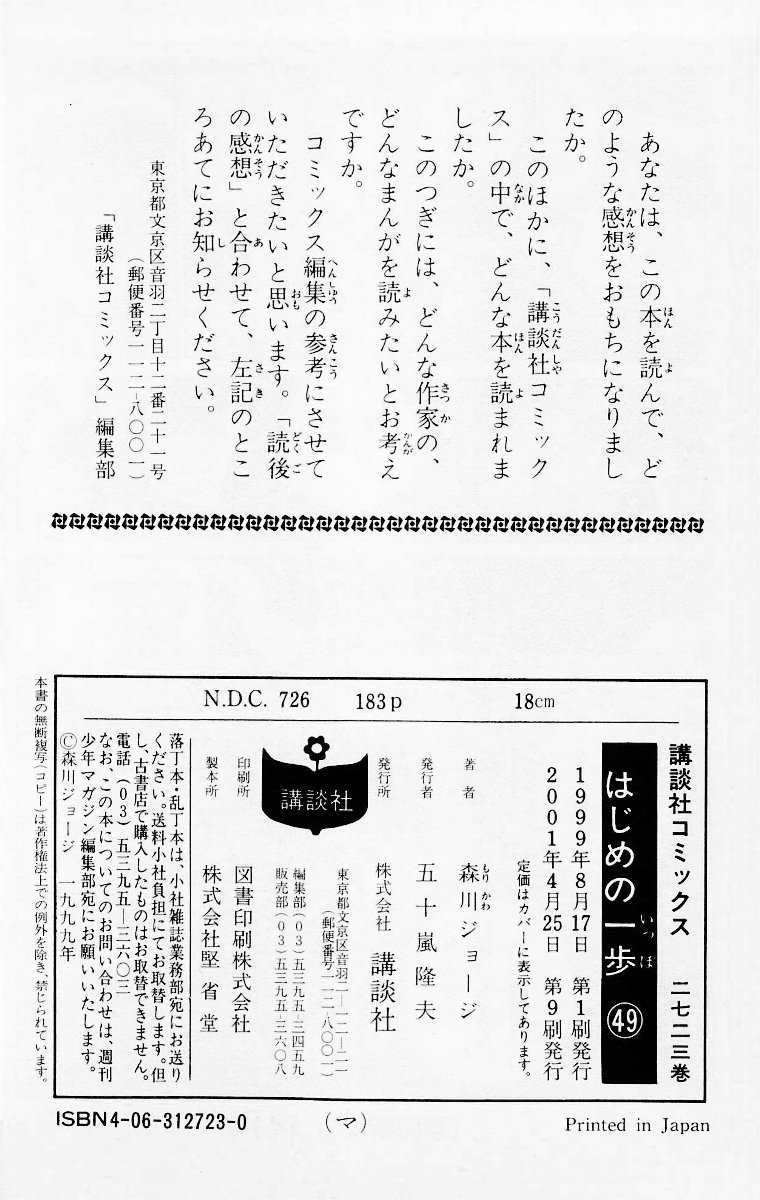 あなたは、この本を読んで、ど
のような感想をおもちになりまし
たか。
このほかに、「講談社コミック
ス」の中で、どんな本を読まれま
したか。
このつぎには、どんな作家の、
どんなまんがを読みたいとお考え
ですか。
コミックス編集の参考にさせて
いただきたいと思います。「読後
の感想」と合わせて、左記のとこ
ろあてにお知らせください。
東京都文京区音羽二丁目十二番二十一号
(郵便番号一一二−八〇〇一)
「講談社コミックス」編集部
N.D.C. 726 183p 18cm
講談社コミックス 二七二三巻
はじめの一歩 ㊾
1999年8月17日 第1刷発行
2001年4月25日 第9刷発行
定価はカバーに表示してあります。
著者 森川ジョージ
発行者 五十嵐隆夫
発行所 株式会社 講談社
東京都文京区音羽二—一二—二一
(郵便番号一一二—八〇〇一)
編集部(03)五三九五—三四五九
販売部(03)五三九五—三六〇八
講談社
印刷所 図書印刷株式会社
製本所 株式会社堅省堂
落丁本・乱丁本は、小社雑誌業務部宛にお送り
ください。送料小社負担にてお取替します。但
し、古書店で購入したものはお取替できません。
電話(03)五三九五—三六〇三
なお、この本についてのお問い合わせは、週刊
少年マガジン編集部宛にお願いいたします。
©森川ジョージ 一九九九年
本書の無断複写(コピー)は著作権法上での例外を除き、禁じられています。
ISBN4-06-312723-0 (マ) Printed in Japan